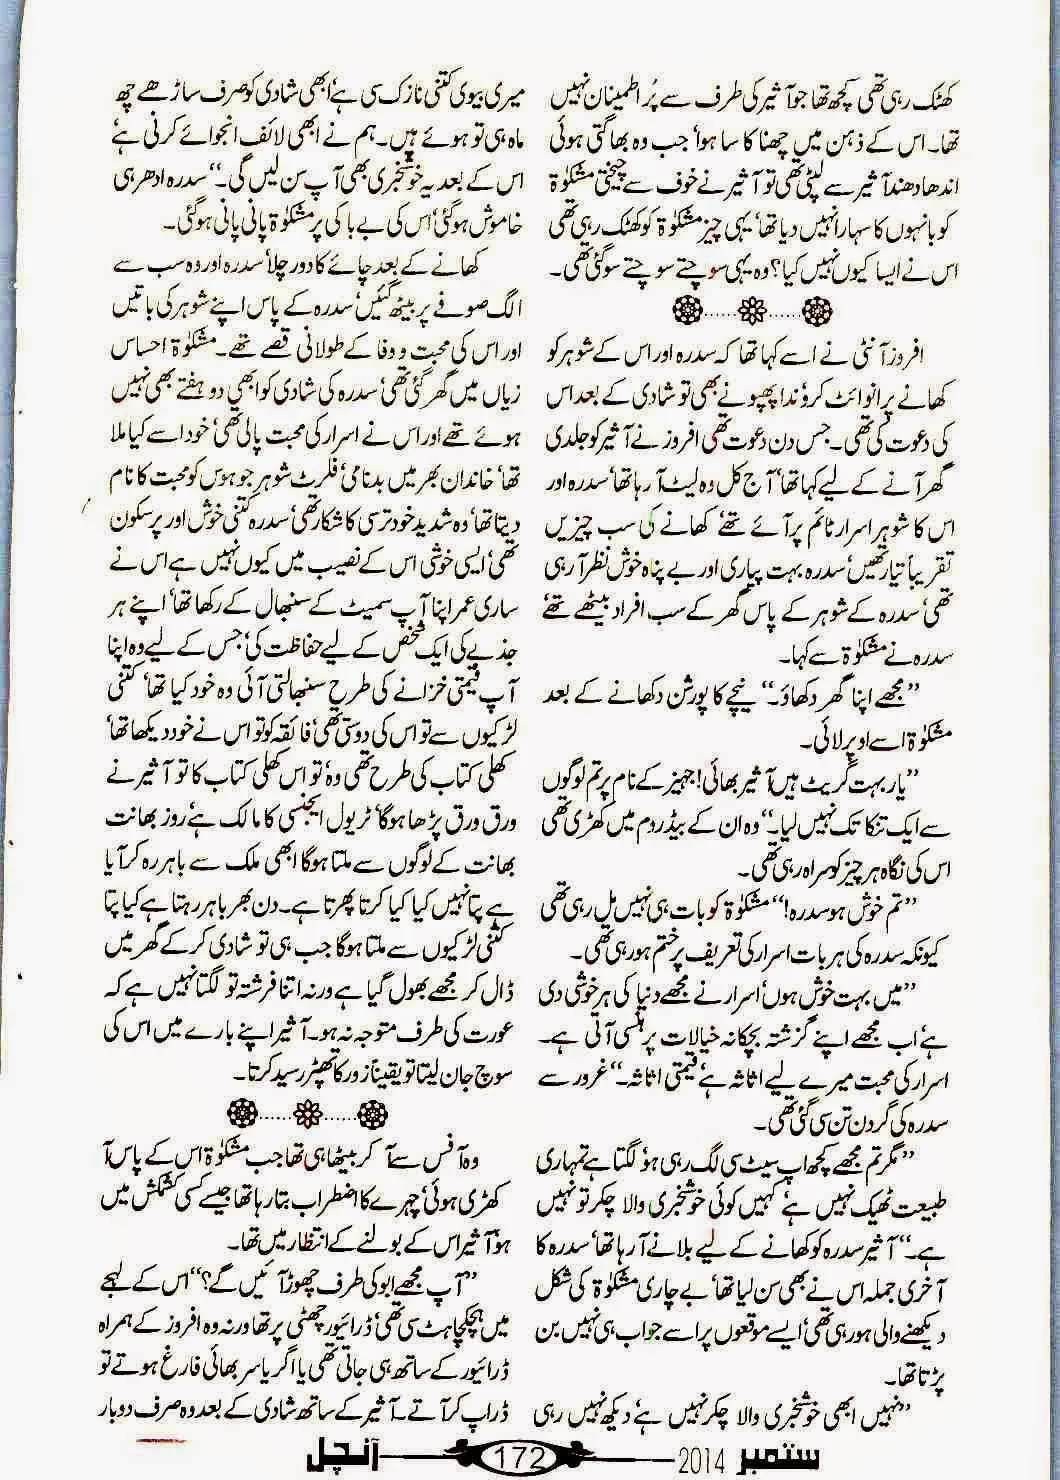 کھٹک رہی تھی کچھ تھا جو آشیر کی طرف سے پُر اطمینان نہیں
تھا۔ اس کے ذہن میں چھناکا سا ہوا‘ جب وہ بھاگتی ہوئی
اندھا دھند آشیر سے لپٹی تھی تو آشیر نے خوف سے چیختی مشکوٰۃ
کو بانہوں کا سہارا نہیں دیا تھا‘ یہی چیز مشکوٰۃ کو کھٹک رہی تھی
اس نے ایسا کیوں نہیں کیا؟ وہ یہی سوچتے سوچتے سو گئی تھی۔
افروز آنٹی نے اسے کہا تھا کہ سدرہ اور اس کے شوہر کو
کھانے پر انوائٹ کرو‘ ندا پھپو نے بھی تو شادی کے بعد اس
کی دعوت کی تھی۔ جس دن دعوت تھی افروز نے آشیر کو جلدی
گھر آنے کے لیے کہا تھا‘ آج کل وہ لیٹ آ رہا تھا‘ سدرہ اور
اس کا شوہر اسرار ٹائم پر آئے تھے‘ کھانے کی سب چیزیں
تقریباً تیار تھیں‘ سدرہ بہت پیاری اور بے پناہ خوش نظر آ رہی
تھی‘ سدرہ کے شوہر کے پاس گھر کے سب افراد بیٹھے تھے‘
سدرہ نے مشکوٰۃ سے کہا۔
”مجھے اپنا گھر دکھاؤ۔“ نیچے کا پورشن دکھانے کے بعد
مشکوٰۃ اسے اوپر لائی۔
”یار بہت گریٹ ہیں آشیر بھائی! جہیز کے نام پر تم لوگوں
سے ایک تنکا تک نہیں لیا۔“ وہ ان کے بیڈروم میں کھڑی تھی
اس کی نگاہ ہر چیز کو سراہ رہی تھی۔
”تم خوش ہو سدرہ!“ مشکوٰۃ کو بات ہی نہیں مل رہی تھی
کیونکہ سدرہ کی ہر بات اسرار کی تعریف پر ختم ہو رہی تھی۔
”میں بہت خوش ہوں‘ اسرار نے مجھے دنیا کی ہر خوشی دی
ہے‘ اب مجھے اپنے گزشتہ بچکانہ خیالات پر ہنسی آتی ہے۔
اسرار کی محبت میرے لیے اثاثہ ہے‘ قیمتی اثاثہ۔“ غرور سے
سدرہ کی گردن تن سی گئی تھی۔
”مگر تم مجھے کچھ اپ سیٹ سی لگ رہی ہو‘ لگتا ہے تمہاری
طبیعت ٹھیک نہیں ہے‘ کہیں کوئی خوشخبری والا چکر تو نہیں
ہے۔“ آشیر سدرہ کو کھانے کے لیے بلانے آ رہا تھا‘ سدرہ کا
آخری جملہ اس نے بھی سن لیا تھا‘ بے چاری مشکوٰۃ کی شکل
دیکھنے والی ہو رہی تھی‘ ایسے موقعوں پر اسے جواب ہی نہیں بن
پڑتا تھا۔
”نہیں ابھی خوشخبری والا چکر نہیں ہے‘ دیکھ نہیں رہی
میری بیوی کتنی نازک سی ہے‘ ابھی شادی کو صرف ساڑھے چھ
ماہ ہی تو ہوئے ہیں۔ ہم نے ابھی لائف انجوائے کرنی ہے‘
اس کے بعد یہ خوشخبری بھی آپ سن لیں گی۔“ سدرہ ادھر ہی
خاموش ہو گئی‘ اس کی بے باکی پر مشکوٰۃ پانی پانی ہو گئی۔
کھانے کے بعد چائے کا دور چلا‘ سدرہ اور وہ سب سے
الگ صوفے پر بیٹھ گئیں‘ سدرہ کے پاس اپنے شوہر کی باتیں
اور اس کی محبت و وفا کے طولانی قصے تھے۔ مشکوٰۃ احساس
زیاں میں گھر گئی تھی‘ سدرہ کی شادی کو ابھی دو ہفتے بھی نہیں
ہوئے تھے اور اس نے اسرار کی محبت پالی تھی‘ خود اسے کیا ملا
تھا‘ خاندان بھر میں بدنامی‘ فلرٹ شوہر جو ہوس کو محبت کا نام
دیتا تھا‘ وہ شدید خود ترسی کا شکار تھی‘ سدرہ کتنی خوش اور پرسکون
تھی‘ ایسی خوشی اس کے نصیب میں کیوں نہیں ہے اس نے
ساری عمر اپنا آپ سمیٹ کے سنبھال کے رکھا تھا‘ اپنے ہر
جذبے کی ایک شخص کے لیے حفاظت کی‘ جس کے لیے وہ اپنا
آپ قیمتی خزانے کی طرح سنبھالتی آئی وہ خود کیا تھا‘ کتنی
لڑکیوں سے تو اس کی دوستی تھی‘ فائقہ کو تو اس نے خود دیکھا تھا‘
کھلی کتاب کی طرح تھی وہ‘ تو اس کھلی کتاب کا تو آشیر نے
ورق ورق پڑھا ہوگا‘ ٹریول ایجنسی کا مالک ہے‘ روز بھانت
بھانت کے لوگوں سے ملتا ہوگا ابھی ملک سے باہر رہ کر آیا
ہے پتا نہیں کیا کیا کرتا پھرتا ہے۔ دن بھر باہر رہتا ہے کیا پتا
کتنی لڑکیوں سے ملتا ہوگا جب ہی تو شادی کر کے گھر میں
ڈال کر مجھے بھول گیا ہے ورنہ اتنا فرشتہ تو لگتا نہیں ہے کہ
عورت کی طرف متوجہ نہ ہو۔ آشیر اپنے بارے میں اس کی
سوچ جان لیتا تو یقیناً زور کا تھپڑ رسید کرتا۔
وہ آفس سے آ کر بیٹھا ہی تھا جب مشکوٰۃ اس کے پاس آ
کھڑی ہوئی‘ چہرے کا اضطراب بتا رہا تھا جیسے کسی کشمکش میں
ہو‘ آشیر اس کے بولنے کے انتظار میں تھا۔
”آپ مجھے ابو کی طرف چھوڑ آئیں گے؟“ اس کے لہجے
میں ہچکچاہٹ سی تھی‘ ڈرائیور چھٹی پر تھا ورنہ وہ افروز کے ہمراہ
ڈرائیور کے ساتھ ہی جاتی تھی یا اگر یاسر بھائی فارغ ہوتے تو
ڈراپ کر آتے۔ آشیر کے ساتھ شادی کے بعد وہ صرف دو بار
ستمبر 2014 172 آنچل